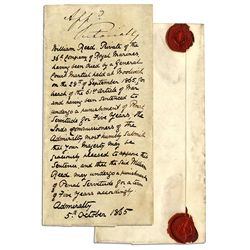 Appd.
William Reed Private of the
36th Company of Royal Marines
having been tried by a General
Court Martial held at Woolwich
on the 29th of September 1865 for
breach of the 61st Article of War
and having been sentenced to
undergo a punishment of Penal
Servitude for Five Years the
Lords Commissioners of the
Admiralty most humbly submit
that Your Majesty may be
graciously pleased to approve the
Sentence, and that the said William
Reed may undergo a punishment
of Penal Servitude for a term
of Five Years accordingly
Admiralty
5th October 1865